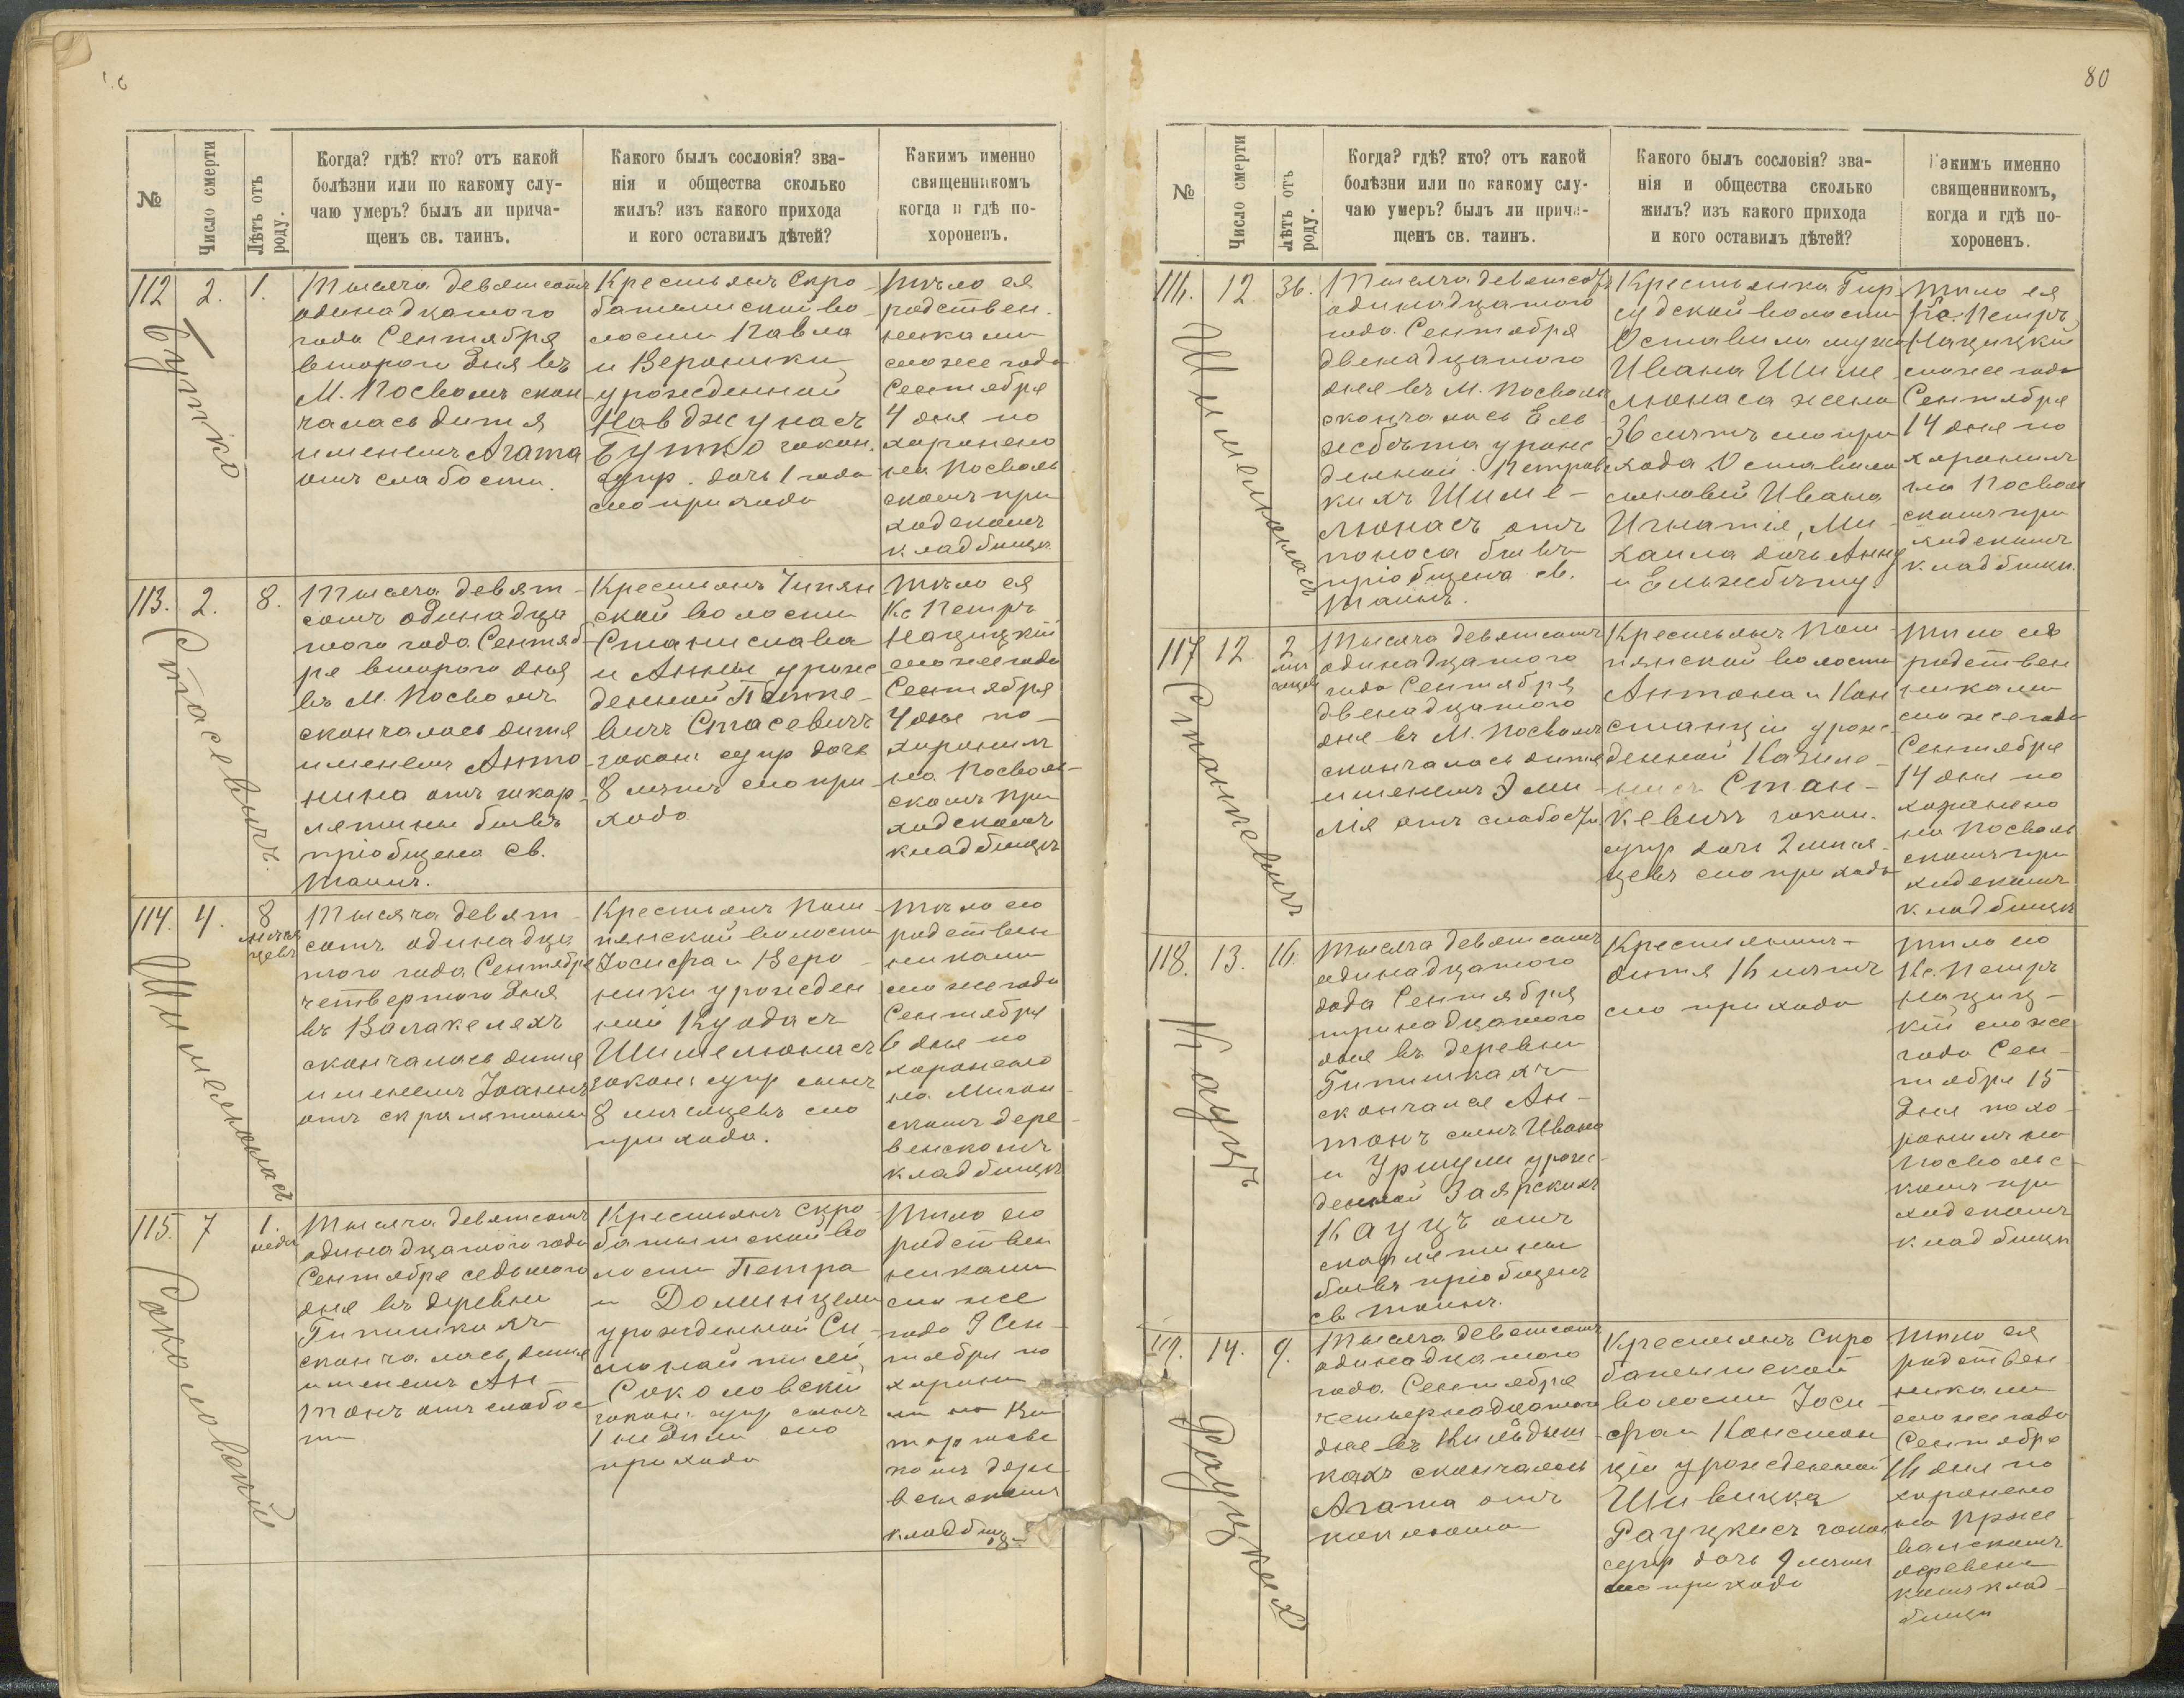 80
№
Число смерти
Лѣтъ отъ роду.
Когда? гдѣ? кто? отъ какой
болѣзни или по какому слу-
чаю умеръ? былъ ли прича-
щенъ св. таинъ.
Какого былъ сословія? зва-
нія и общества сколько
жилъ? изъ какого прихода
и кого оставилъ дѣтей?
Какимъ именно
священникомъ
когда и гдѣ по-
хороненъ.
112
2.
1.
Бутко
Тысяча девятсотъ
одинадцатого
года Сентября
второго дня въ
М. Посволь скон
чалась дитя
именемъ Агата
отъ слабости.
Крестьянъ Скро
батишской во
лости Павла
и Вероники
урожденной
Навджунасъ
Бутко закон.
супр. дочь 1 года
сего прихода
Тѣло ея
родствен.
никами
сего же года
Сентября
4 дня по
хоронено
на Посволь
скомъ при
ходскомъ
кладбищѣ
113.
2.
8.
Стасевичъ.
Тысяча девят
сотъ одинадца
того года Сентяб
ря второго дня
въ М. Посволь
скончалось дитя
именемъ Анто
нина отъ шкар
лятины бывъ
пріобщена св.
Таинъ.
Крестьянъ
ской волости
Станислава
и Анны урож
денной Петке
вичъ Стасевичъ
закон: супр дочь
8 лѣтъ сего при
хода
Тѣло ея
Кс Петръ
Нацицкій
сего же года
Сентября
4 дня по-
хоронилъ
на Посволь-
скомъ при
ходскомъ
кладбищѣ
114.
4.
8
мѣся
цевъ
Шимелюнасъ
Тысяча девят
сотъ одинадца
того года Сентября
четвертого дня
въ Валакеляхъ
скончалось дитя
именемъ Іоаннъ
отъ скралятины
Крестьянъ Пом
пянской волости
Іосифа и Веро
ники урожден
ной Куодасъ
Шимелюнасъ
закон: супр сынъ
8 мѣсяцевъ сего
прихода.
Тѣло его
родствен
никами
сего же года
Сентября
6 дня по
хоронено
на
скомъ дере
венскомъ
кладбищѣ
115.
7
1.
недѣл
Соколовскій
Тысяча девятсотъ
одинадцатого года
Сентября седьмого
дня въ деревни
Гипишкахъ
скончалась дитя
именемъ Ан
тонъ отъ слабос
ти
Крестьянъ Скро
батышской во
лости Петра
и Доминцели
урожденной Си
монайтисъ
Соколовскій
закон: супр сынъ
1 недѣли сего
прихода
Тѣло его
родствен
никами
сего же
года 9 Сен
тября по
хороне
но на
комъ дере
венскомъ
кладбищѣ
№
Число смерти
Лѣтъ отъ роду.
Когда? гдѣ? кто? отъ какой
болѣзни или по какому слу-
чаю умеръ? былъ ли прича-
щенъ св. таинъ.
Какого былъ сословія? зва-
нія и общества сколько
жилъ? изъ какого прихода
и кого оставилъ дѣтей?
Какимъ именно
священникомъ,
когда и гдѣ по-
хороненъ.
116.
12
36.
Шимелюнасъ
Тысяча девятсотъ
одинадцатого
года Сентября
двенадцатого
дня въ М. Посволь
скончалась Ель
жбѣта урож
денной Петровс
кихъ Шиме-
люнасъ отъ
поноса бывъ
пріобщена св.
Таинъ.
Крестьянка Гир
судской волости
Оставила мужа
Ивана Шиме
люнаса жена
36 лѣтъ сего при
хода Оставила
сыновей Ивана
Игнатія, Ми
хаила дочь Анну
и Ельжбѣту
Тѣло ея
Кс. Петръ
Нацицкій
сего же года
Сентября
14 дня по
хоронилъ
на Посволь
скомъ при
ходскомъ
кладбищѣ.
117
12
2
мѣс
яцевъ
Станкевичъ
Тысяча девятсотъ
одинадцатого
года Сентября
двенадцатого
дня въ М. Посволь
скончалась дитя
именемъ Эми
лія отъ слабости
Крестьянъ Пом
пянской волости
Антона и Кон
станціи урож
денной
Стан-
кевичъ закон.
супр дочь 2 мѣся
цевъ сего прихода
Тѣло ея
родствен
никами
сего же года
Сентября
14 дня по
хоронено
на Посволь
скомъ при
ходскомъ
кладбищѣ
118.
13.
16.
Кауцъ
Тысяча девятсотъ
одинадцатого
года Сентября
тринадцатого
дня въ деревни
Гипишкахъ
скончался Ан-
тонъ сынъ Ивана
и Уршули урож
денной Заярскихъ
Кауцъ отъ
скарлятины
бывъ пріобщенъ
св Таинъ.
Крестьянинъ
дитя 16 лѣтъ
сего прихода
Тѣло его
Кс. Петръ
Нациц-
кій сего же
года Сен-
тября 15
дня похо
ронилъ на
Посвольс
комъ при
ходскомъ
кладбищѣ
119.
14.
9.
Рауцкисъ
Тысяча девятсотъ
одинадцатого
года Сентября
четырнадцатого
дня въ
кахъ скончалась
Агата отъ
коклюша
Крестьянъ Скро
батышской
волости Іоси
фа и Констан
ціи урожденной
Шивицка
Рауцкисъ закон
супр дочь 9 лѣтъ
сего прихода
Тѣло ея
родствен
никами
сего же года
Сентября
16 дня по
хоронено
на
деревенс
комъ клад
бищѣ